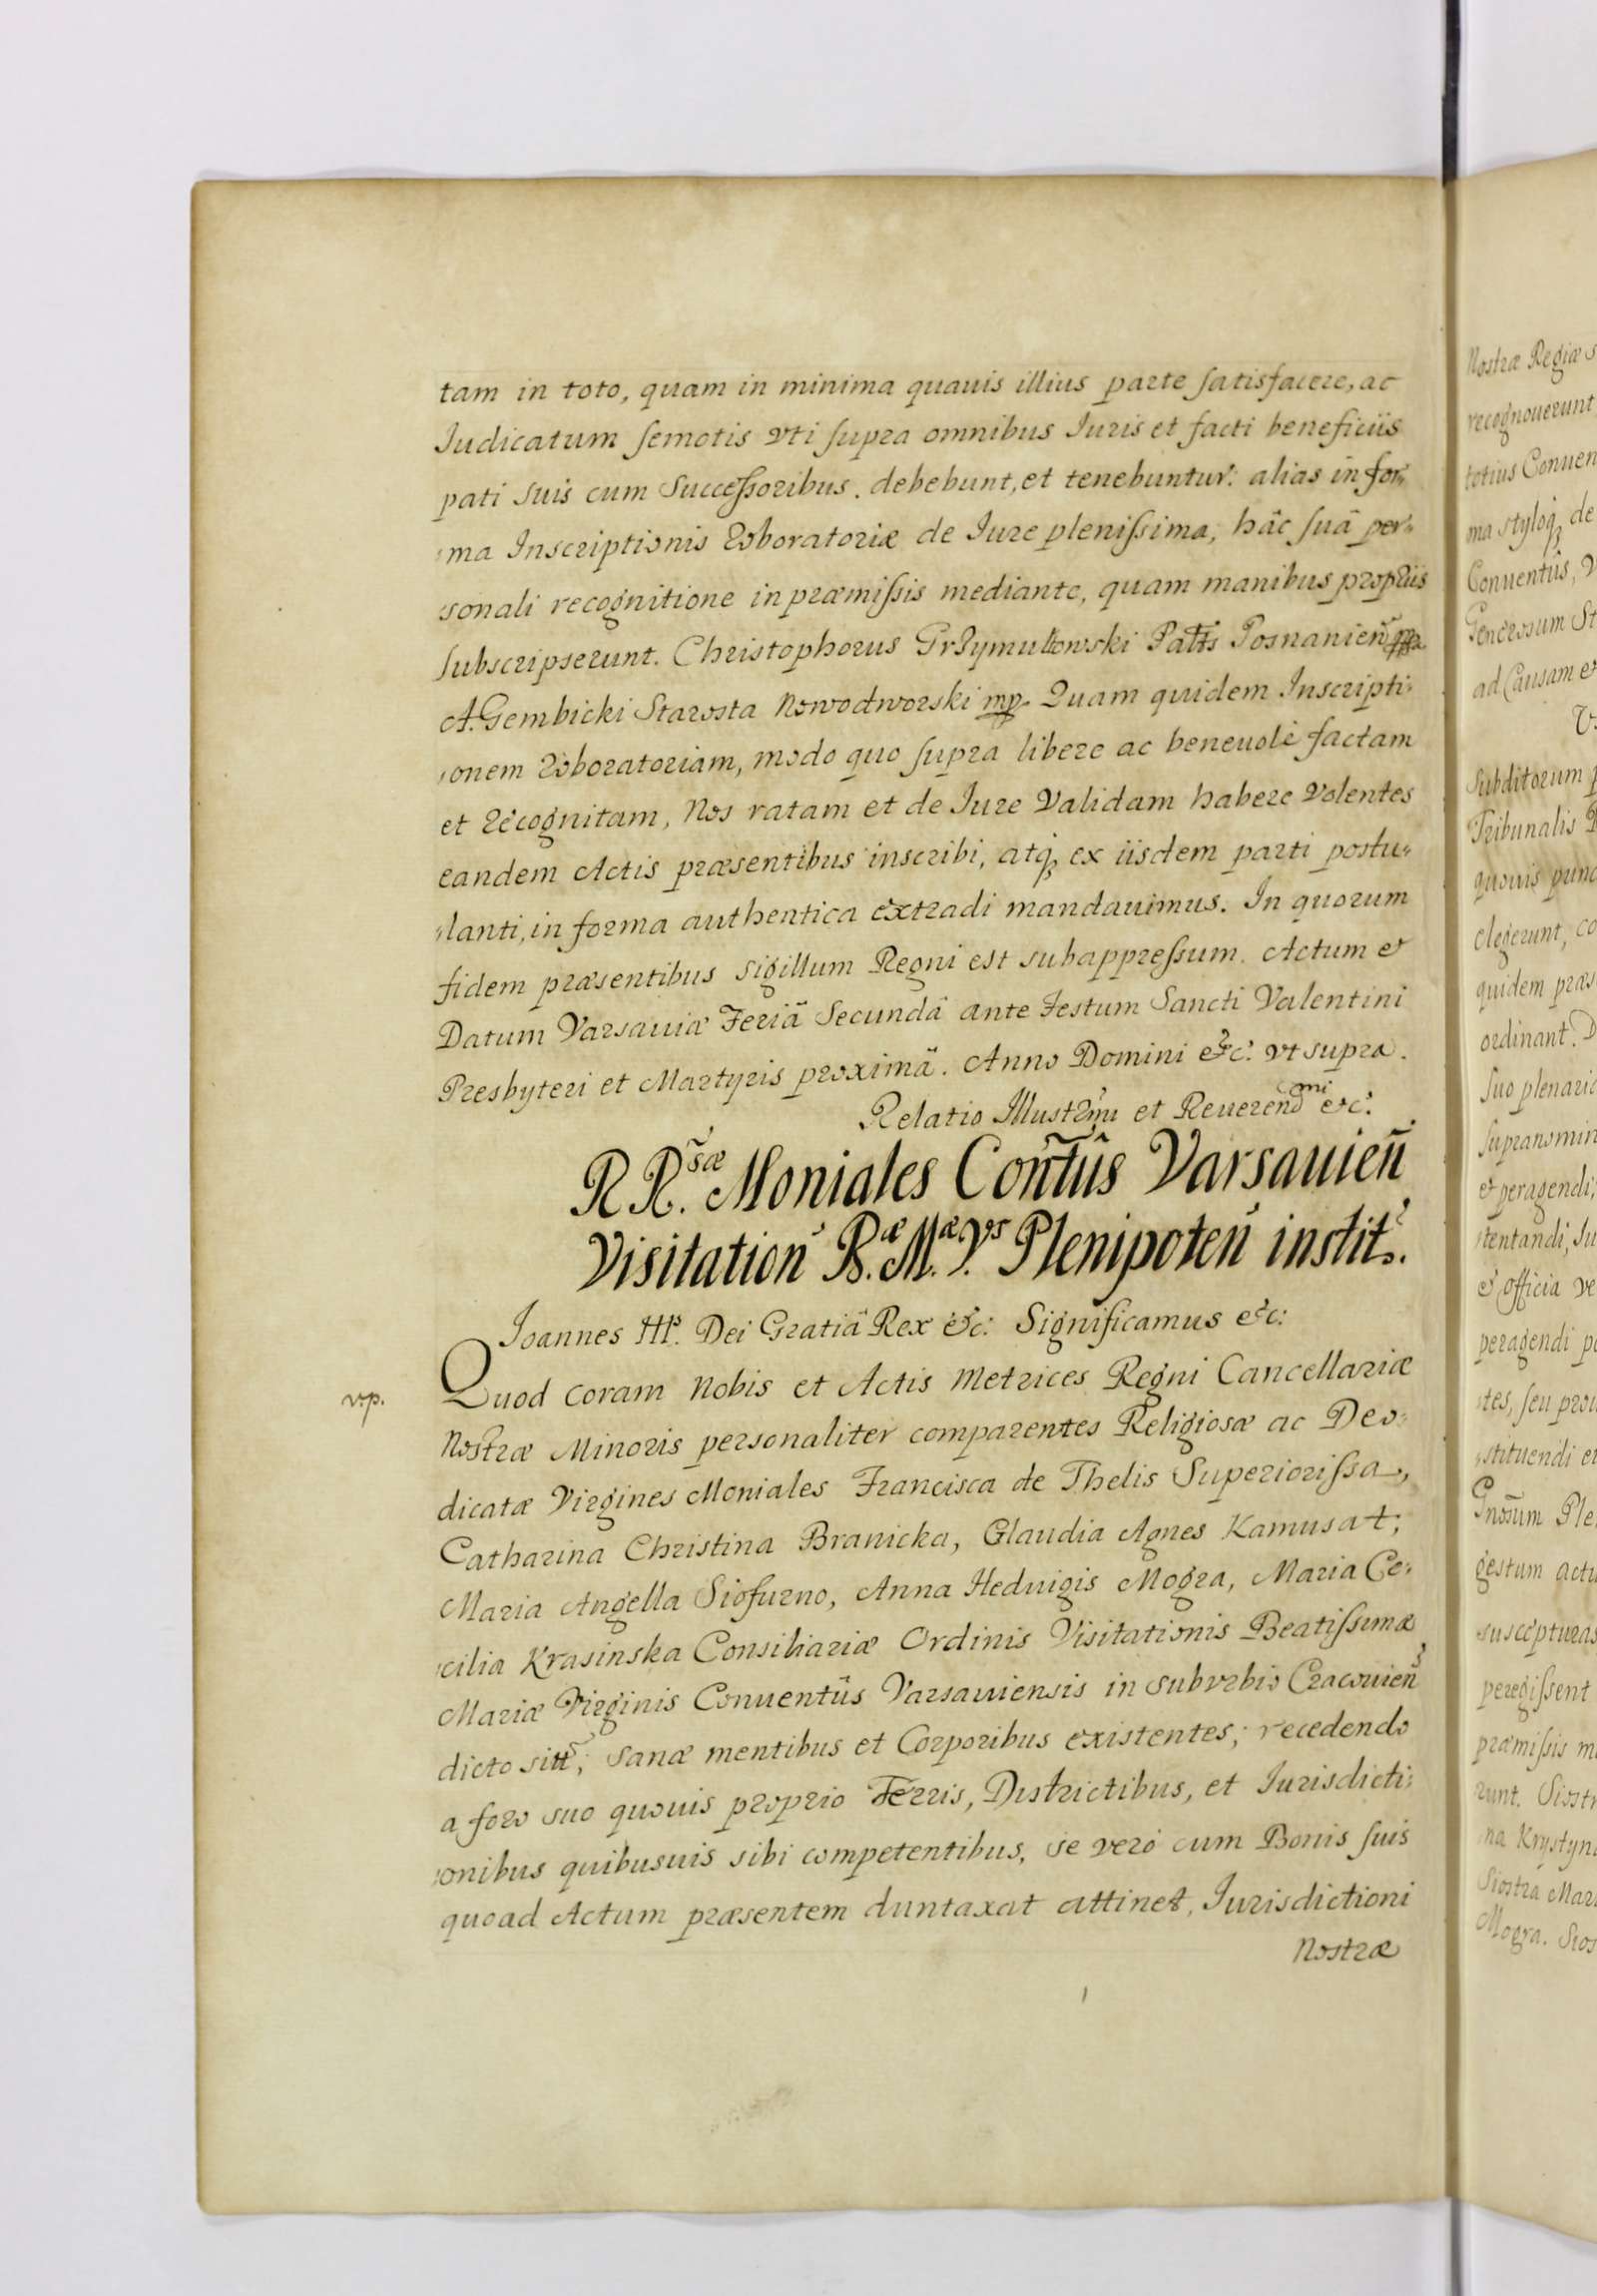 tam in toto, quam in minima quauis illius parte satisfacere, ac
Iudicatum semotis vti supra omnibus Iuris et facti beneficiis
pati suis cum Successoribus. debebunt, et tenebuntur: alias in for,,
,,ma Inscriptionis Roboratoriæ de Iure plenissima, hâc suâ per,,
,,sonali recognitione in præmissis mediante, quam manibus propriis
subscripserunt. Christophorus Grzymułtowski Pałts Posnanien̄
A. Gembicki Starosta Nowodworski mp. Quam quidem Inscripti,,
,,onem Roboratoriam, modo quo supra libere ac beneuolè factam
et recognitam, Nos ratam et de Iure Validam habere Volentes
eandem Actis præsentibus inscribi, atq, ex iisdem parti postu,,
,,lanti, in forma authentica extradi mandauimus. In quorum
fidem præsentibus Sigillum Regni est subappressum. Actum et
Datum Varsauiæ Feriâ Secundâ ante Festum Sancti Valentini
Presbyteri et Martyris proximâ. Anno Domini &c. vt supra.
Relatio Illustrm̄i et Reuerendmi &c.
R R.sæ Moniales Con̄tûs Varsauien̄
Visitation̄ B.æ M.æ V.is Plenipoten̄ instit.
Joannes III. Dei Gratiâ Rex &c: Significamus &c:
v.p.
Quod coram Nobis et Actis Metrices Regni Cancellariæ
Nostræ Minoris personaliter comparentes Religiosæ ac Deo,,
dicatæ Virgines Moniales Francisca de Thelis Superiorissa,
Catharina Christina Branicka, Glaudia Agnes Kamusat,
Maria Angella Siofurno, Anna Heduigis Mogra, Maria Ce,,
,,cilia Krasinska Consiliariæ Ordinis Visitationis Beatissimæ
Mariæ Virginis Conuentûs Varsauiensis in suburbio Cracouien̄
dicto sitt, sanæ mentibus et Corporibus existentes; recedendo
a foro suo quouis proprio Terris, Districtibus, et Iurisdicti,,
,,onibus quibusuis sibi competentibus, se verò cum Bonis suis
quoad Actum præsentem duntaxat attinet, Iurisdictioni
Nostræ
Nostræ Regiæ
recognouerunt
totius Conuen
ma styloq, de
Conuentûs,
Generosum St
ad Causam et
Subditorum
Tribunalis
quouis punc
elegerunt, co
quidem præs
ordinant.
suo plenario
supranomin
et peragendi,
,,tentandi, Iu
et officia ve
peragendi
,,tes, seu
,,stituendi
Gn̄osum Ple
gestum actu
suscepturas
peregissent
præmissis
,,runt. Siostr
,,na Krystyn
Siostra Mar
Mogra. Sios